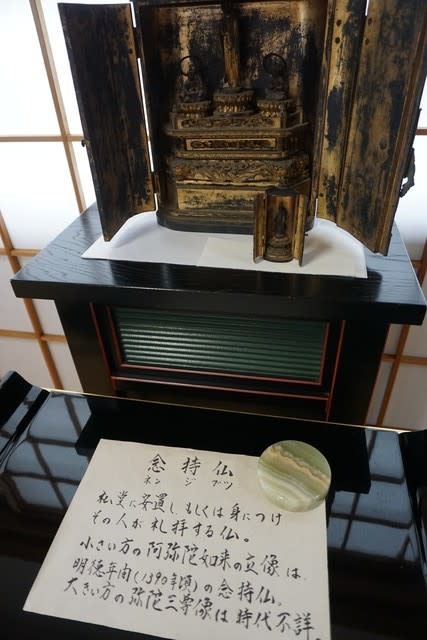 念持仏
ネンジブツ
私堂に安置しもしくは身につけ
その人が礼拝する仏。
小さい方の阿弥陀如来の立像は
明徳年間(1390年頃)の念持仏。
大きい方の弥陀三尊像は時代不詳